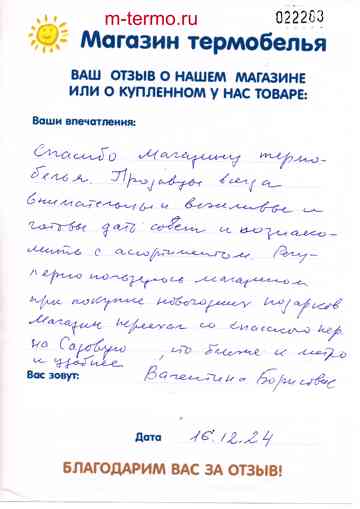 m-termo.ru
022263
Магазин термобелья
ВАШ ОТЗЫВ О НАШЕМ МАГАЗИНЕ
ИЛИ О КУПЛЕННОМ У НАС ТОВАРЕ:
Ваши впечатления:
Спасибо магазину термо-
белья. Продавцы всегда
внимательны и вежливые и
готовы дать совет и познако-
мить с ассортиментом. Регу-
лярно пользуюсь магазином
при покупке новогодних подарков
Магазин переехал со Спасского пер.
на Садовую, что ближе к метро
и удобнее
Вас зовут: Валентина Борисовна
Дата 16.12.24
БЛАГОДАРИМ ВАС ЗА ОТЗЫВ!